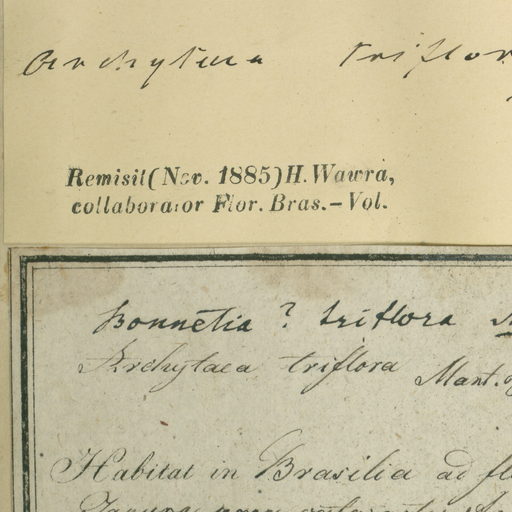 Archytaea triflor
Remisit (Nov. 1885) H. Wawra,
collaborator Flor. Bras. – Vol.
Bonnetia ? triflora
Archytaea triflora Mart.
Habitat in Brasilia ad fl